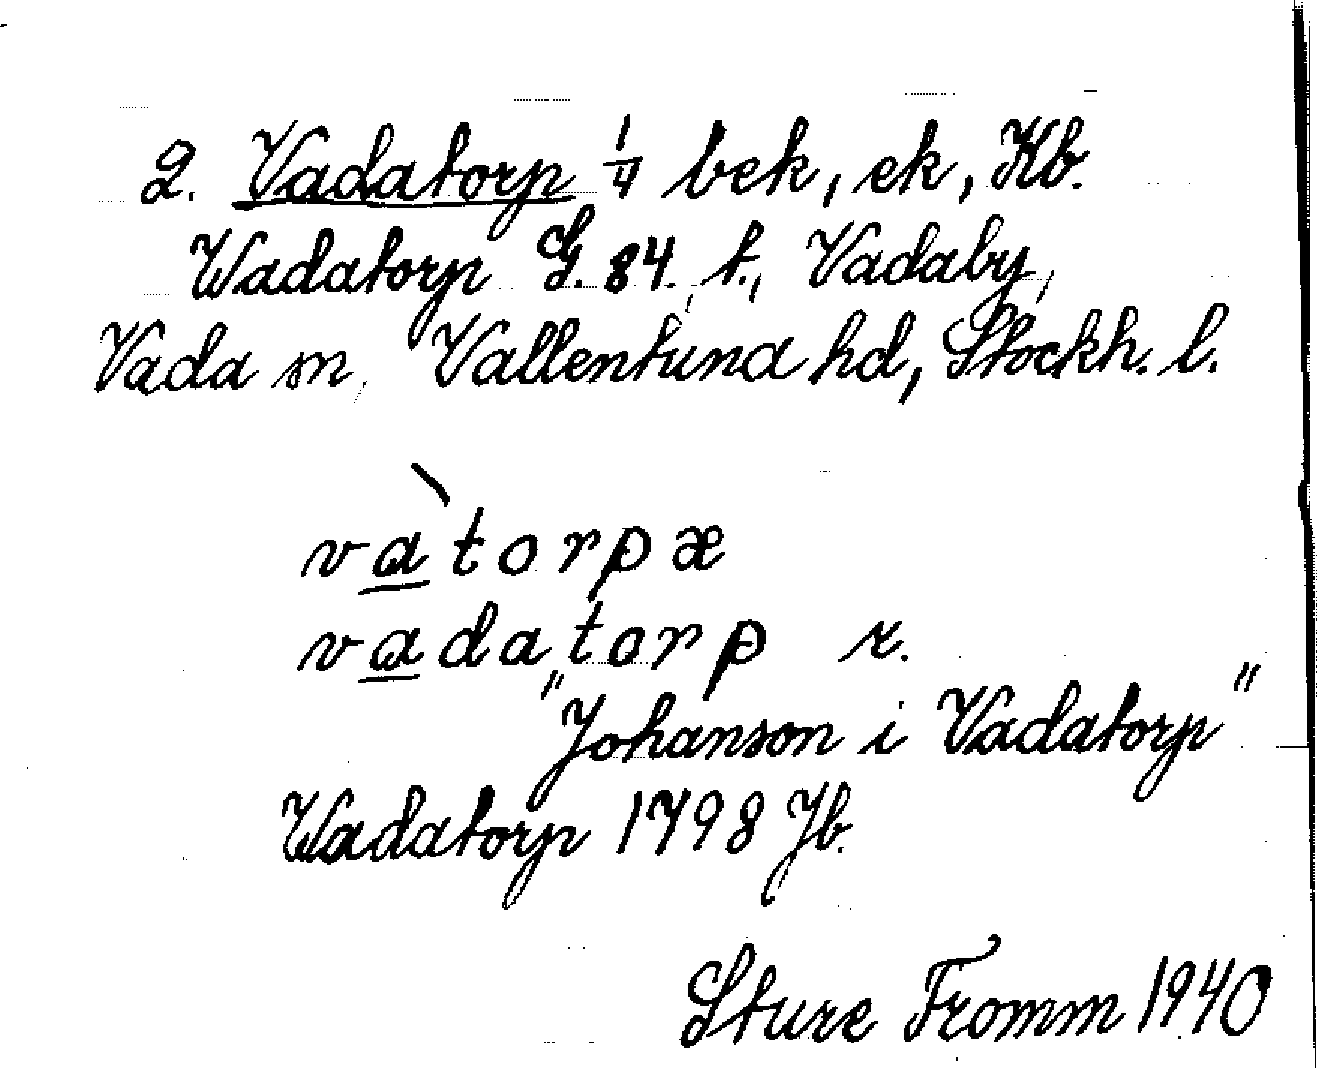 2. Vadatorp 1/7 bek, ek, Kb.
Wadatorp G. 84. t., Vadaby,
Vada sn, Vallentuna hd, Stockh. l.
và torpæ
vadatorp r.
"Johanson i Vadatorp"
Wadatorp 1798 Jb.
Sture Fromm 1940